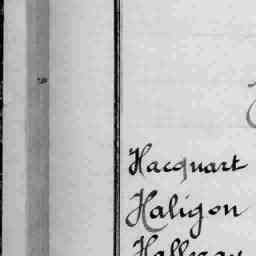 Hacquart
Haligon